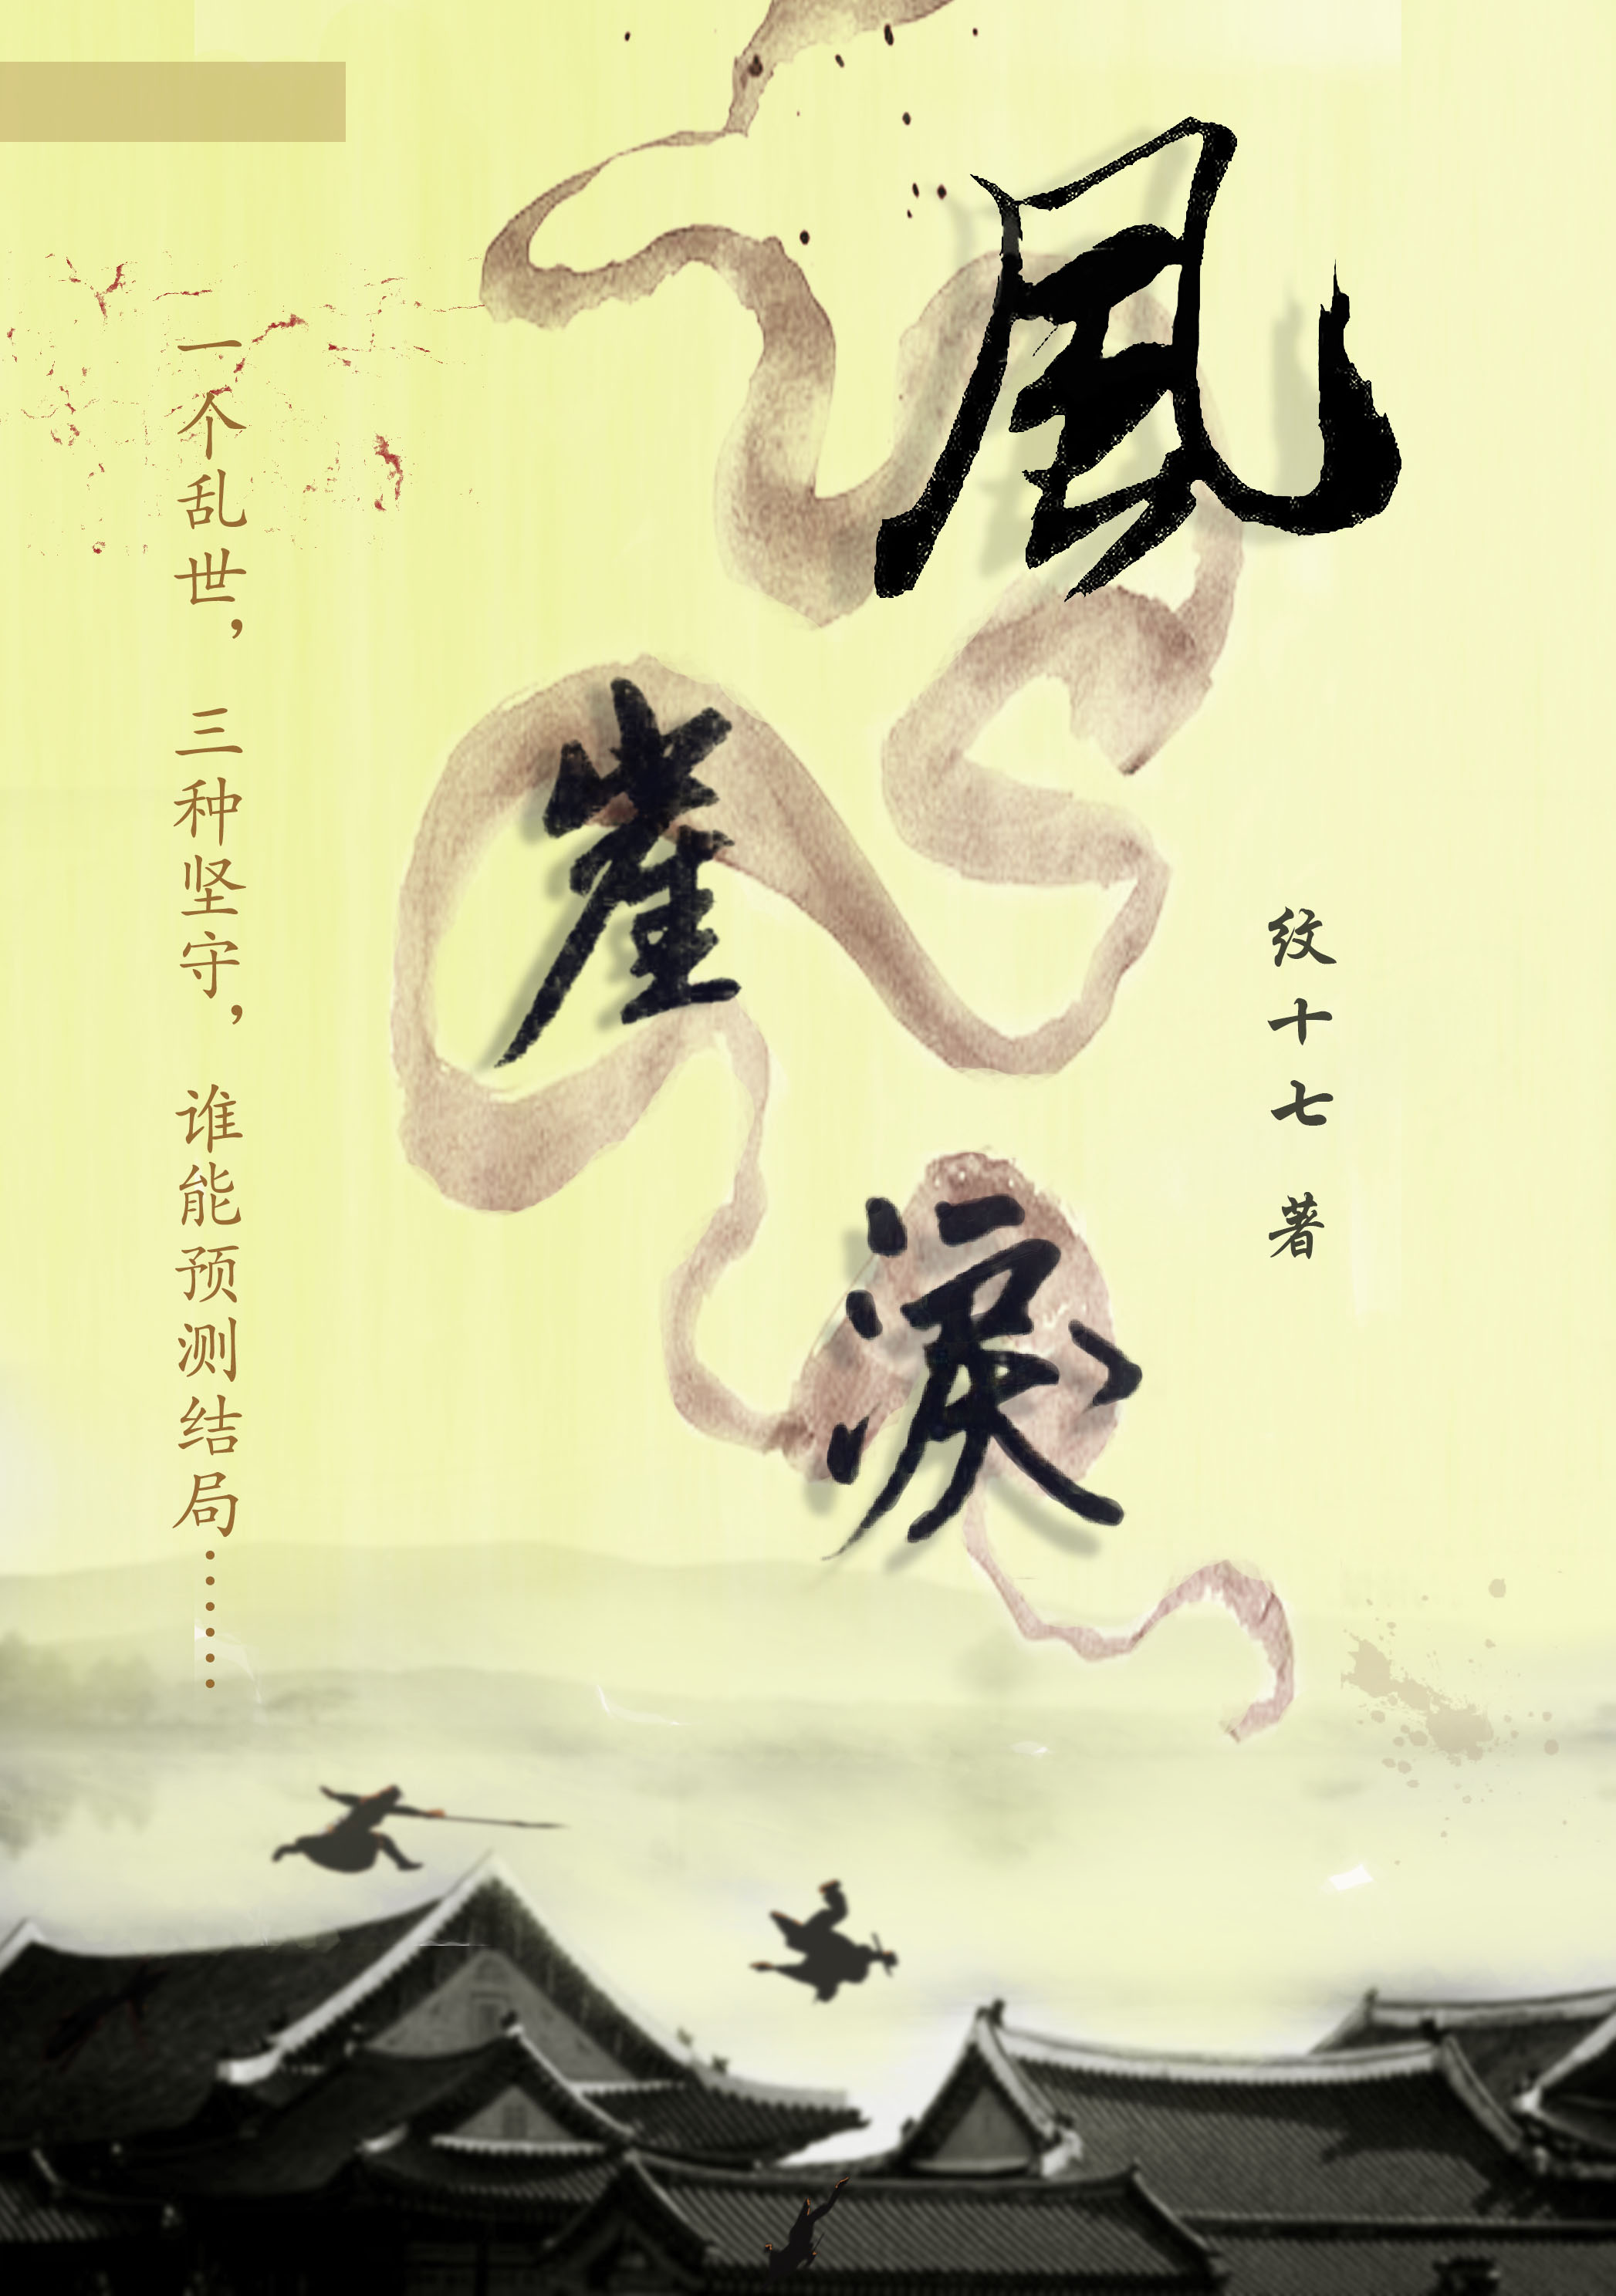 風崖淚
纹十七 著
一个乱世，三种坚守，谁能预测结局……